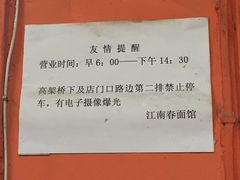 友情提醒
营业时间：早6：00——下午14：30
高架桥下及店门口路边第二排禁止停
车，有电子摄像爆光
江南春面馆